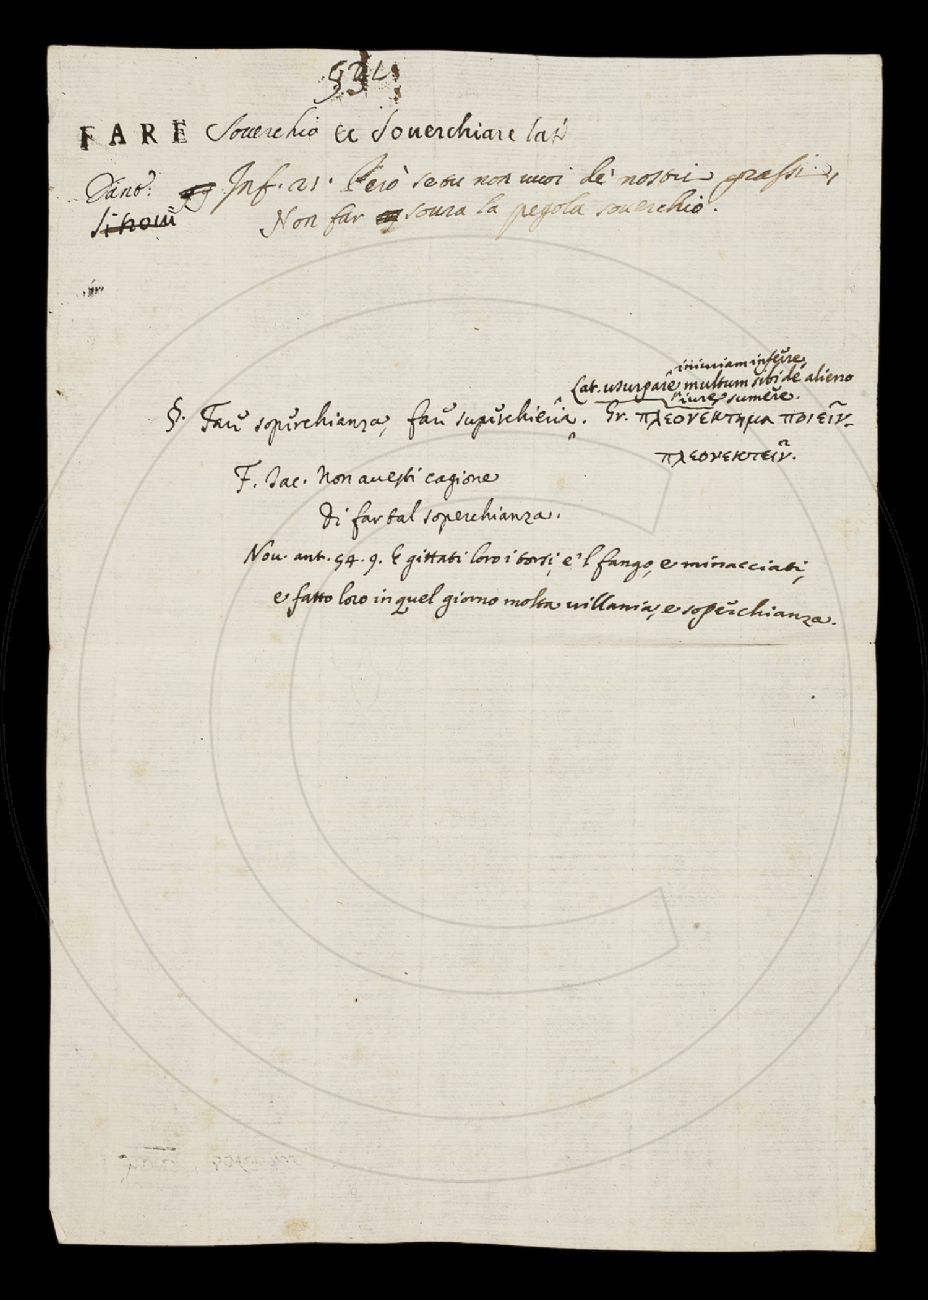 §31
FARE Souerchio et Souerchiare lat
Dant. Inf. 21. Però se tu non uuoi de' nostri graffi,
Non far soura la pegola souerchio.
iniuriam inferre,
Lat. usurpare, multum sibi de alieno
iure sumere.
§. Fare soperchianza, fare superchieria. Gr. πλεονεκτημα ποιειν.
πλεονεκτειν.
F. Iac. Non auesti cagione
Di far tal soperchianza.
Nou. ant. 54. 9. E gittati loro i torsi, e 'l fango, e minacciati,
e fatto loro in quel giorno molta uillania, e soperchianza.